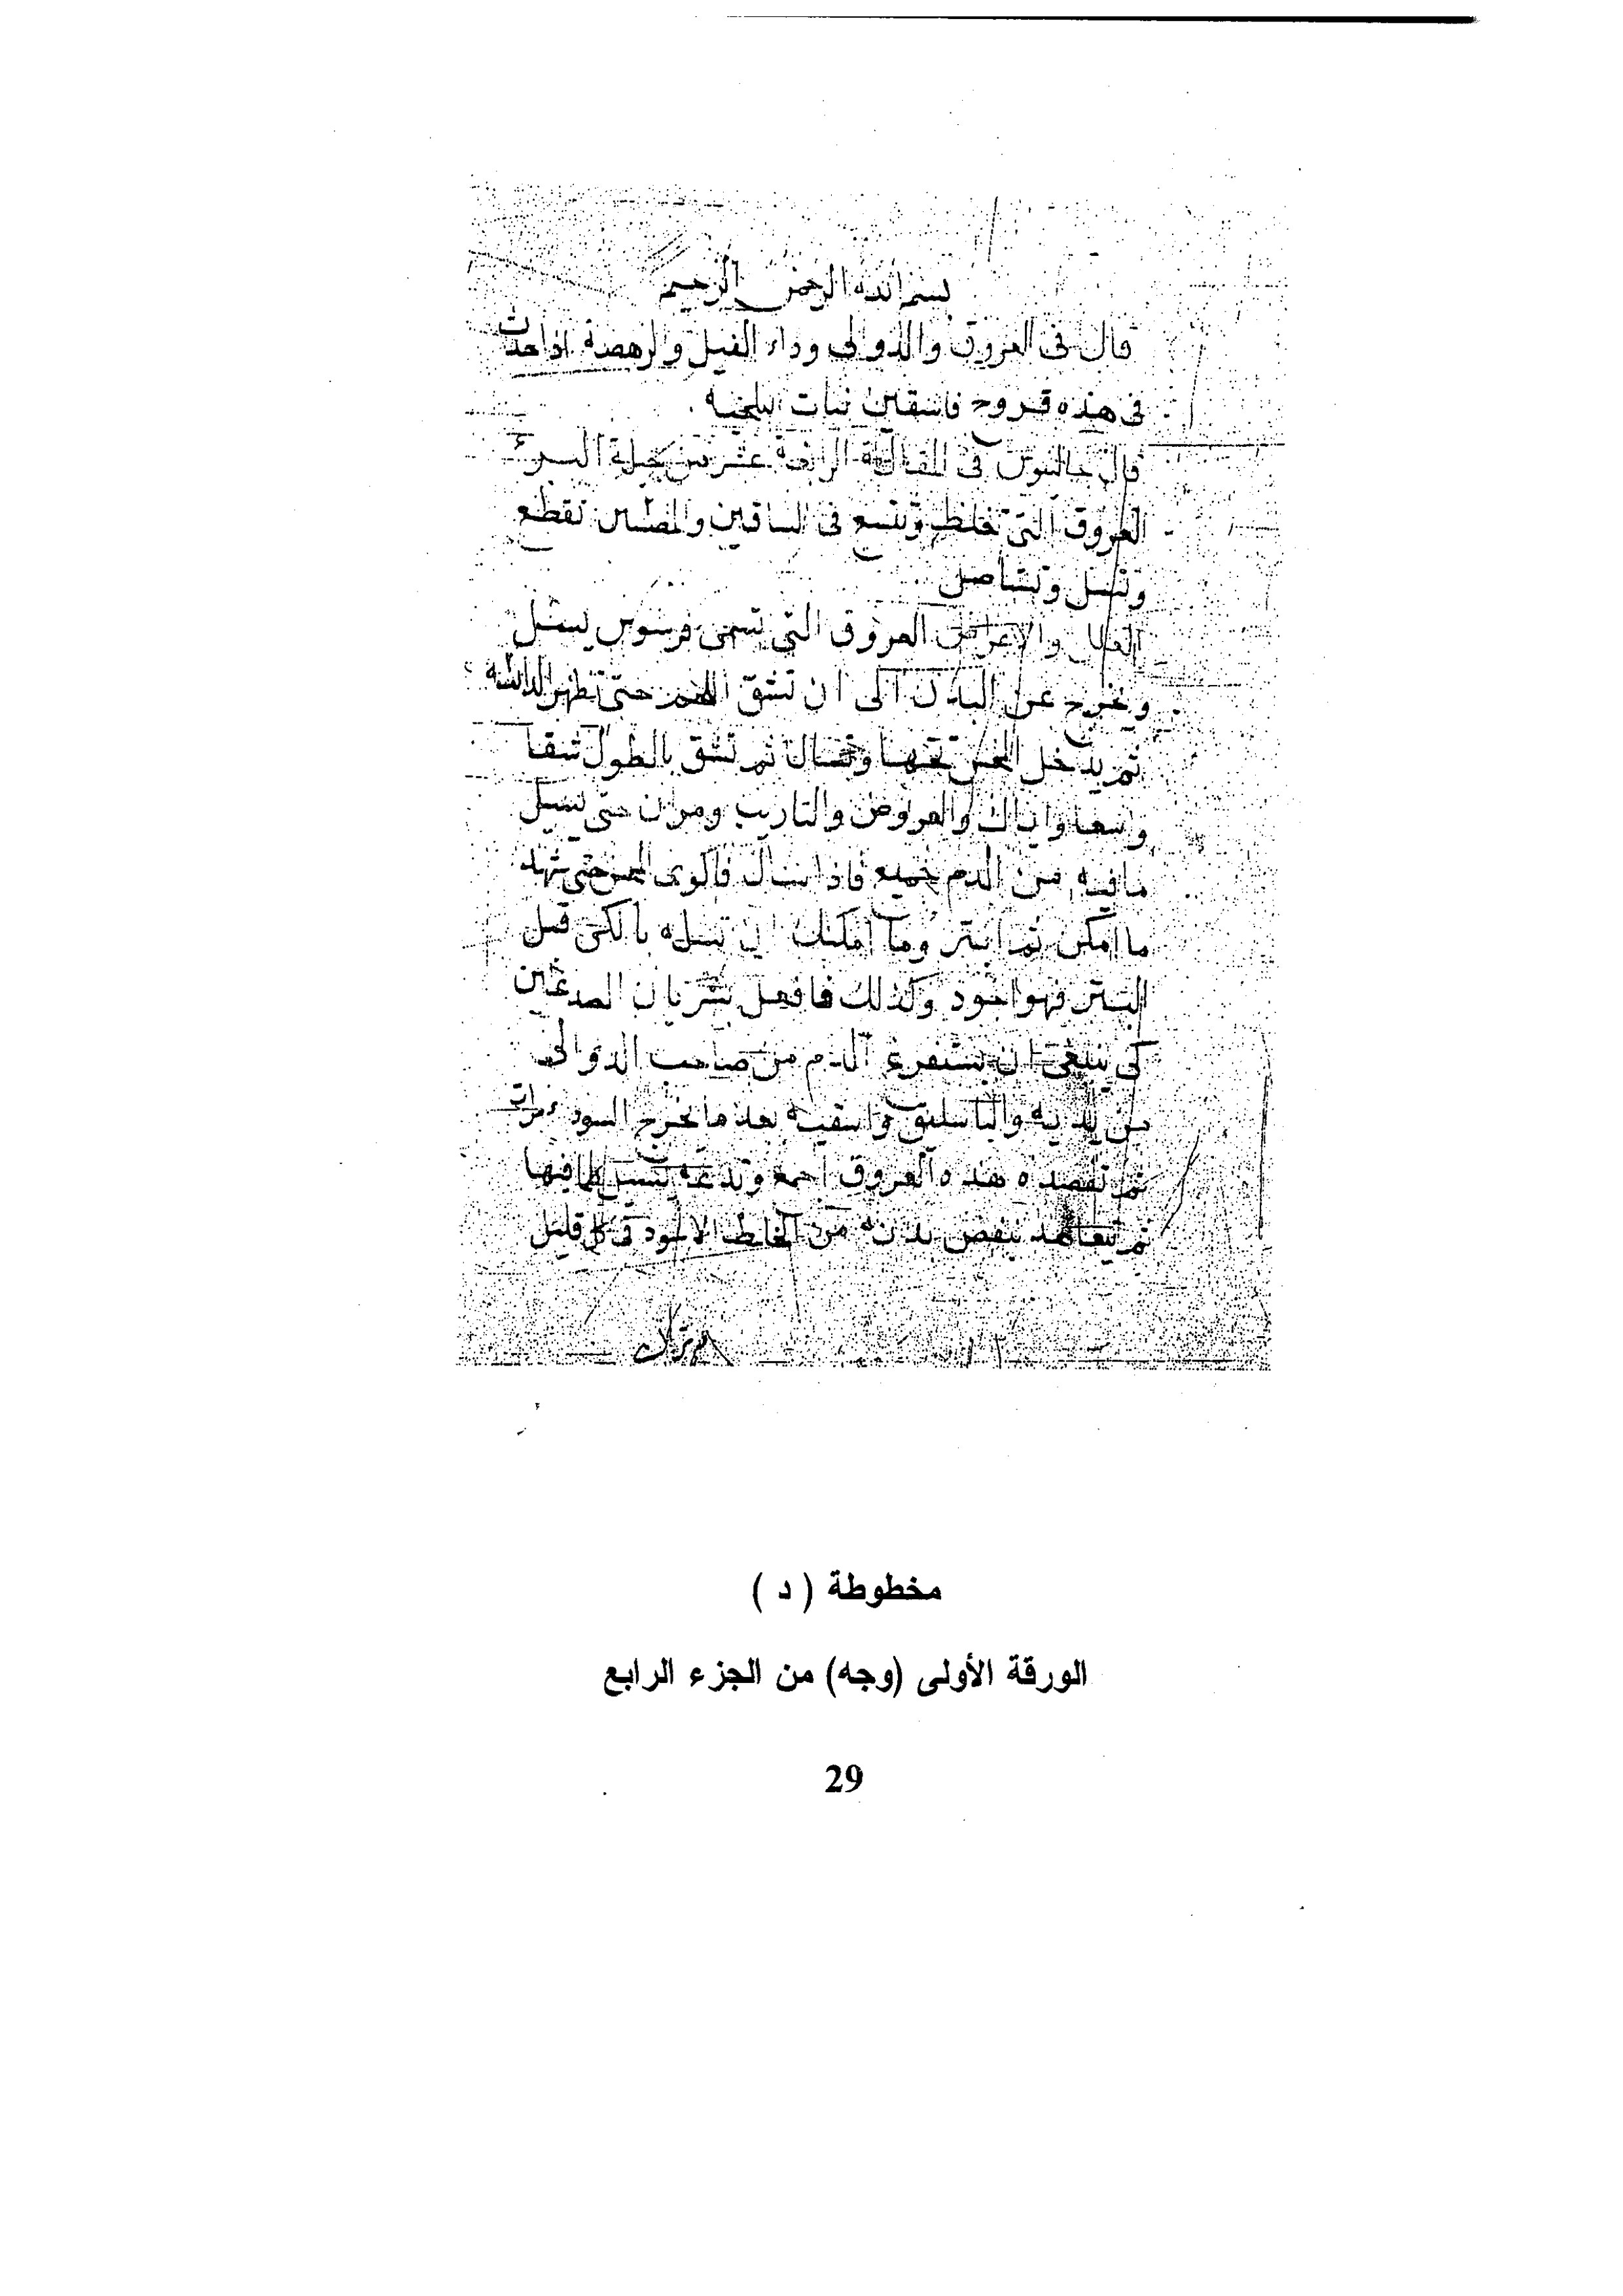 بسم الله الرحمن الرحيم
قال فى العروق والدوالى وداء الفيل والرهصة اذا حدث
فى هذه قروح نبات
قال جالينوس فى المقالة الرابعة عشر من حيلة البرء
العروق التى تغلظ وتتسع فى الساقين تقطع
وتسل وتستاصل
العلل والاعراض العروق التى تسمى يسل
ويخرج عن البدن الى ان تشق حتى تظهر
ثم يدخل تحتها ثم تشق بالطول شقا
واسعا واياك والعروض والتاريب حتى تسيل
ما فيه من الدم جميع فاذا سال
ما امكن ثم ابتر وما امكنك ان تسله بالكى قبل
البتر فهو اجود وكذلك فافعل بشريان الصدغين
كى ينبغى ان يستفرغ الدم من صاحب الدوالى
من يديه والباسليق واسقيه بعد ما يخرج السوداء مرات
ثم تفصده هذه العروق اجمع وتدعه يسيل كلما فيها
ثم تتعاهد بنفض بدنه من الخلط الاسود فى كل قليل
مخطوطة ( د )
الورقة الأولى (وجه) من الجزء الرابع
29